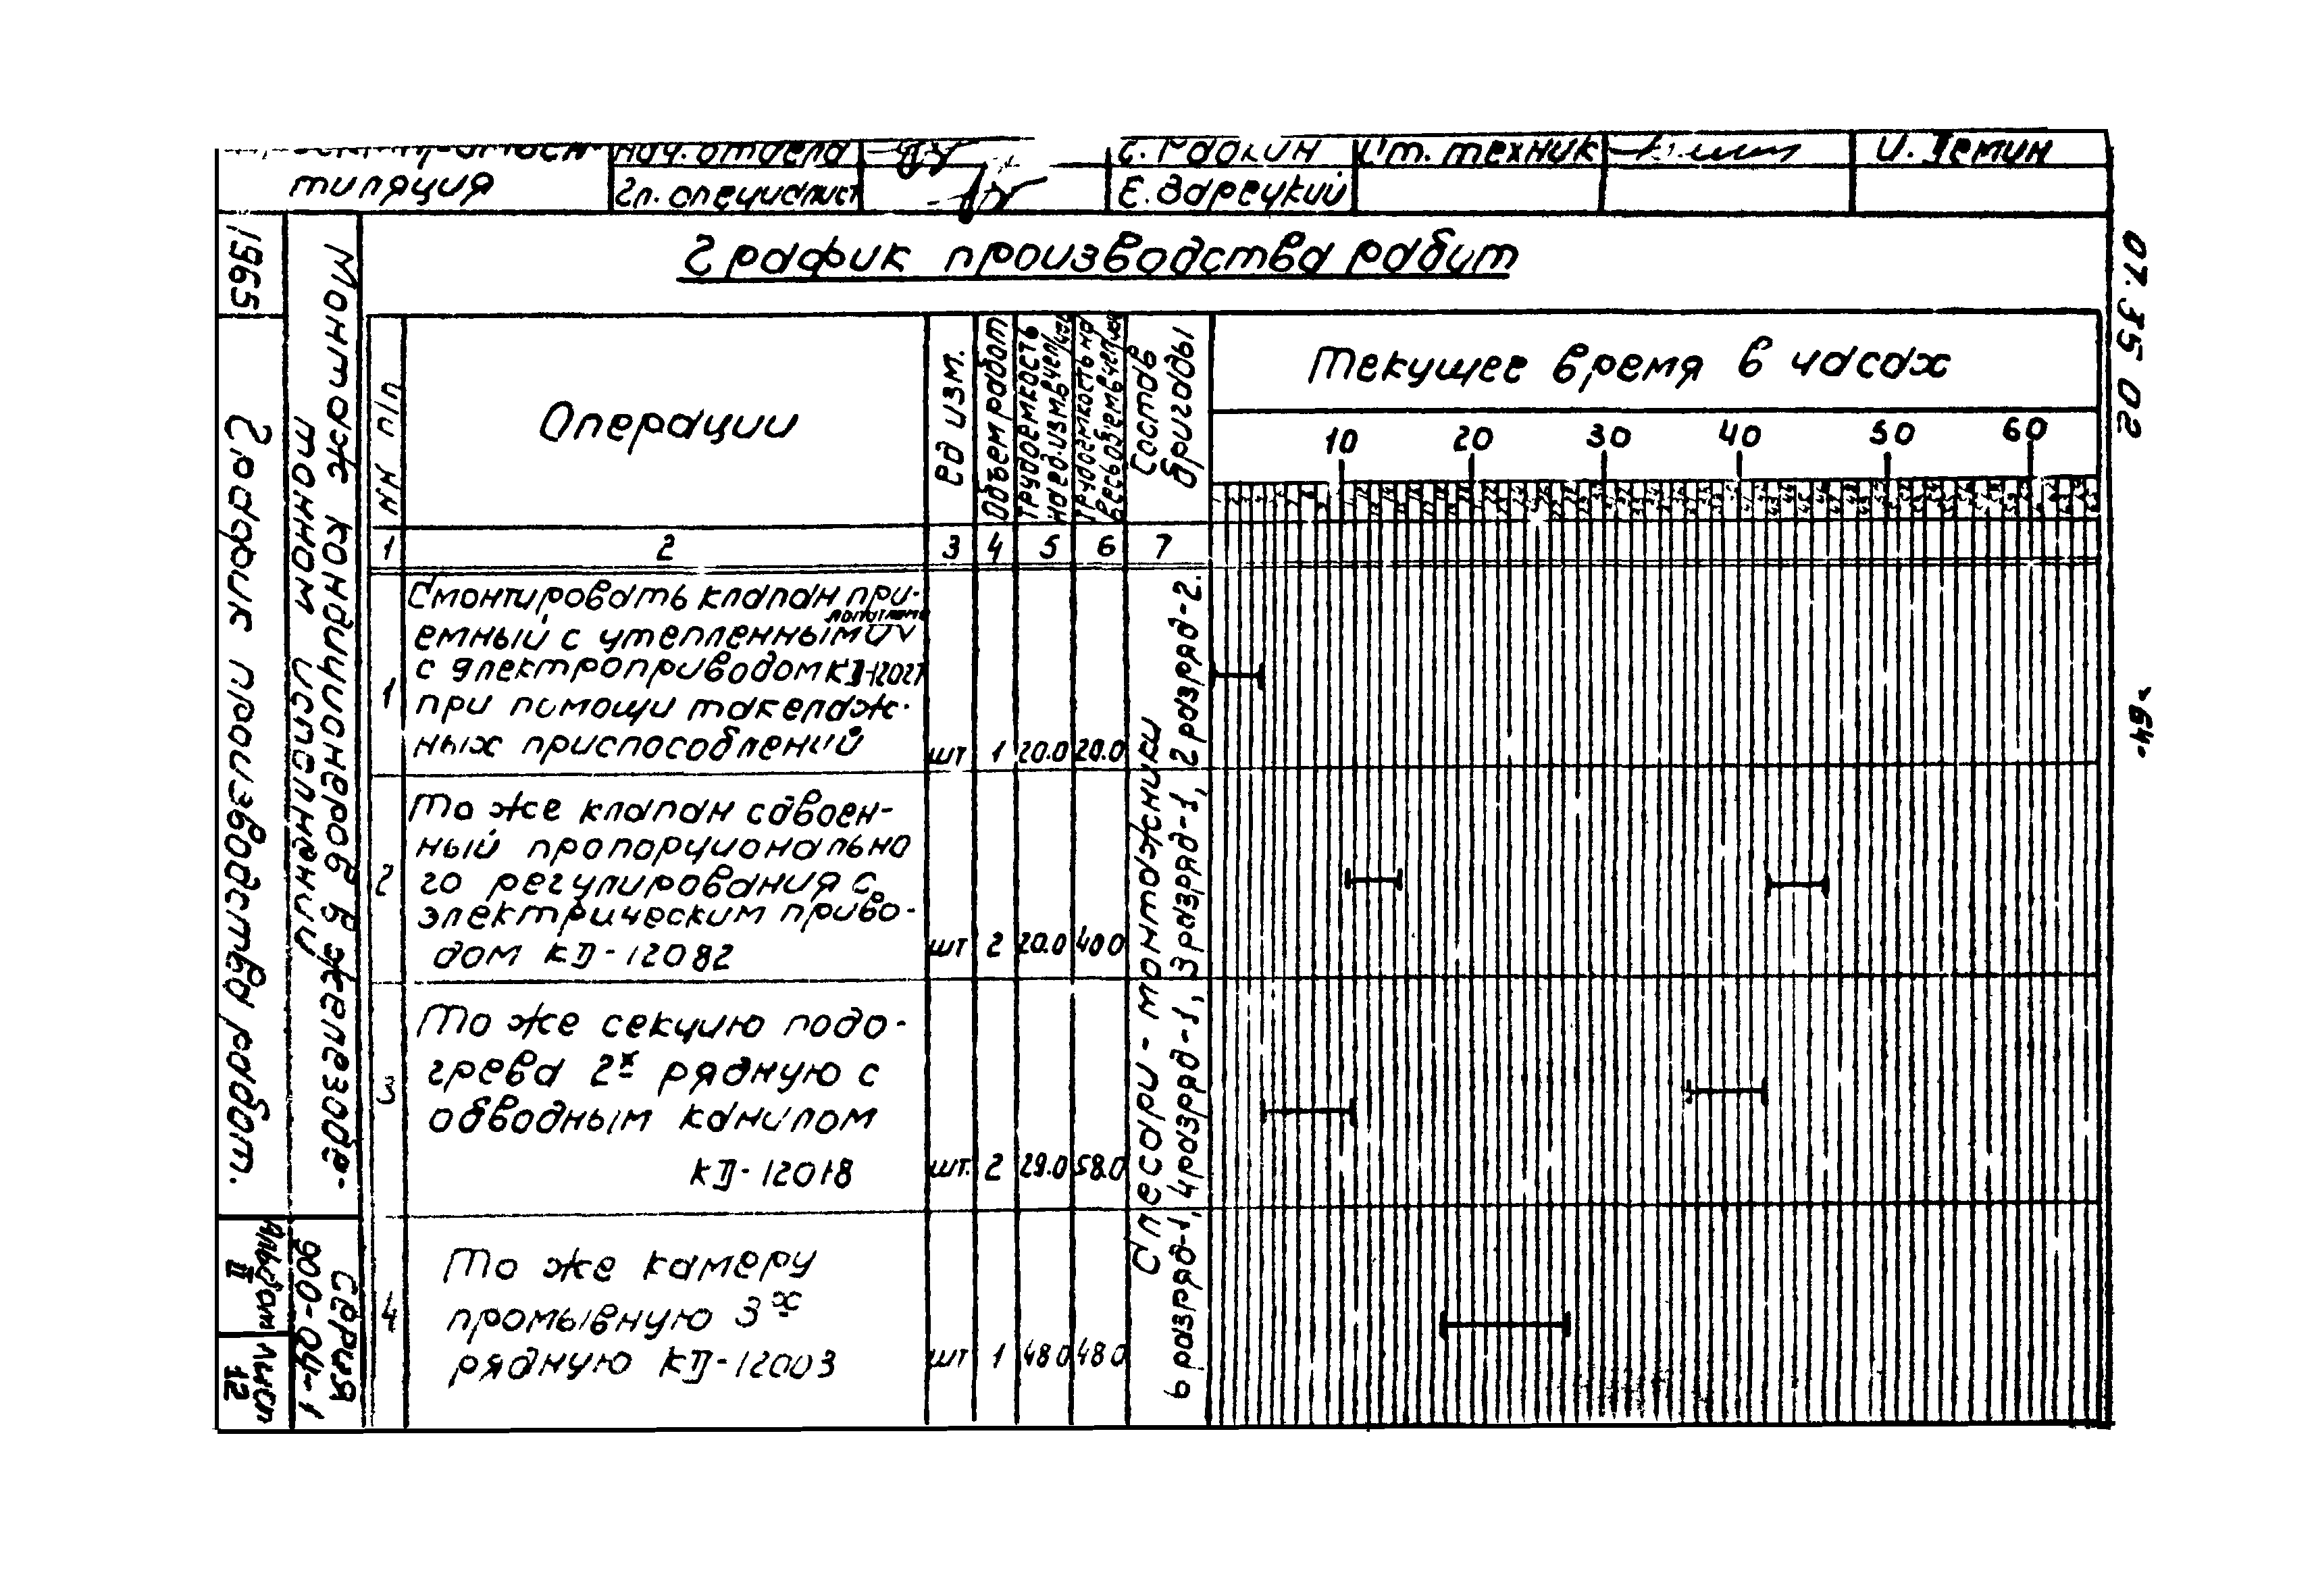 тиляция
Нач. отдела
С. Радкин
Ст. техник
Гл. специалист
Е. Зарецкий
График производства работ
07.35 02
-64-
1965
Монтаж кондиционеров в железобе-
тонном исполнении
График производства работ.
Серия
900-04-1
Альбом
II
Лист
12
NN п/п
Операции
Ед изм.
Объем работ
Трудоемкость
на ед. изм. в чел/час
Трудоемкость на
весь объем в чел/час
Состав
бригады
Текущее время в часах
10 20 30 40 50 60
1 2 3 4 5 6 7
1
Смонтировать клапан при-
емный с утепленными лопатками
с электроприводом
при помощи такелаж-
ных приспособлений
шт 1 20.0 20.0
2
То же клапан сдвоен-
ный пропорционально
го регулирования с
электрическим приво-
дом КД-12082
шт 2 20.0 40 0
3
То же секцию подо-
грева 2х рядную с
обводным каналом
КД-12018
шт. 2 29.0 58.0
4
То же камеру
промывную 3х
рядную КД-12003
шт 1 48 0 48 0
Слесари - монтажники
6 разряд-1, 4 разряд-1, 3 разряд-1, 2 разряд-2.